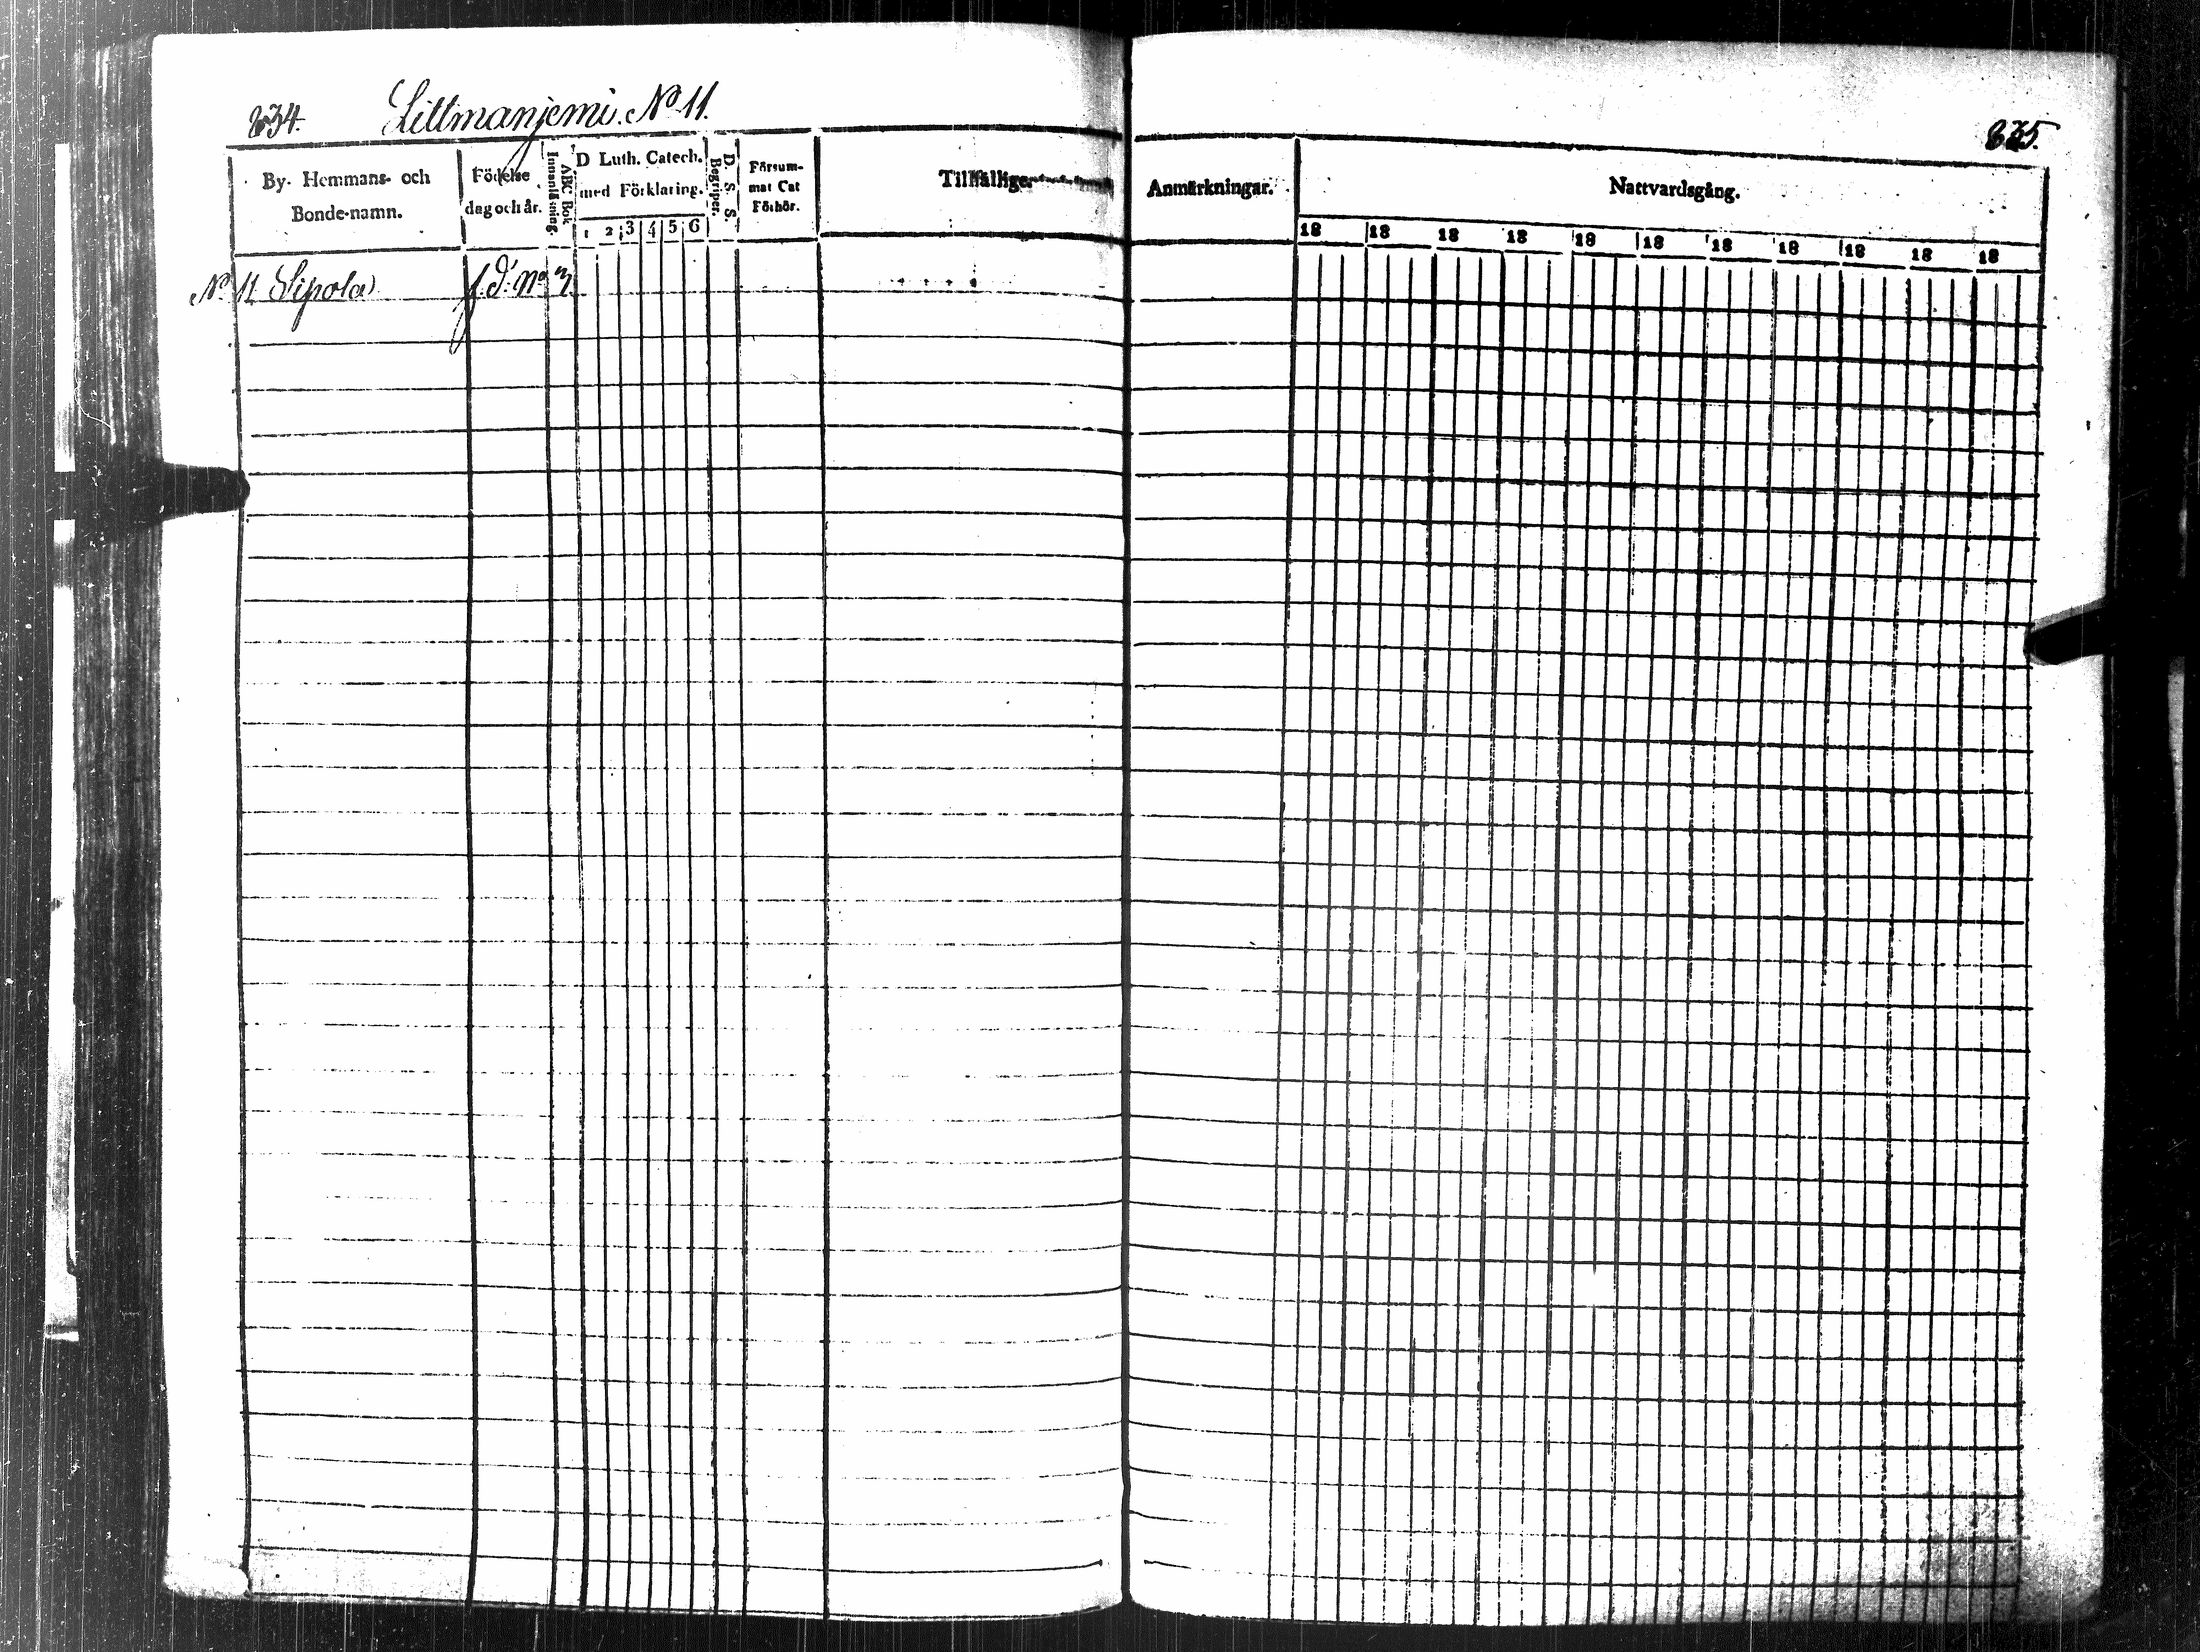 234. Littmanjemi. No 11.
235.
By- Hemmans- och
Bonde-namn.
Födelse
dag och år.
ABC Bok
Innanläsning.
D Luth. Catech.
med Förklaring.
1 2 3 4 5 6
D. S. S.
Begriper.
Försum-
mat Cat
Förhör.
Tillfällige
Anmärkningar.
Nattvardsgång.
18 18 18 18 18 18 18 18 18 18 18
No 11 Sipola